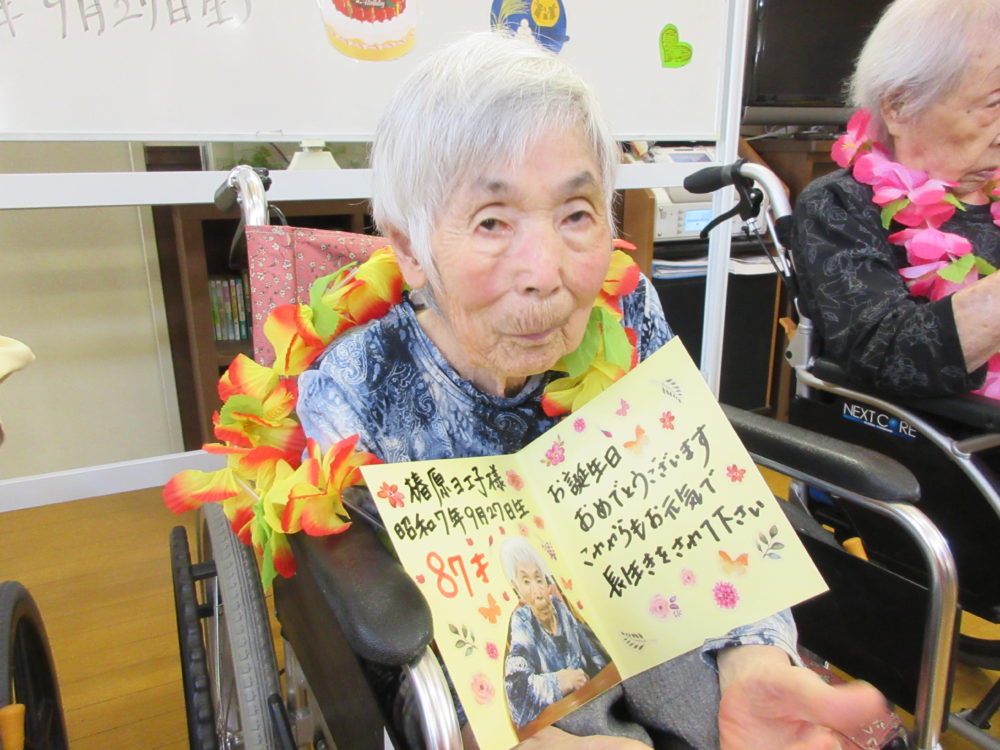 年9月27日生)
椿原ヨエ子様
昭和7年9月27日生
87才
お誕生日
おめでとうございます
これからもお元気で
長生きをされて下さい
NEXT CORE